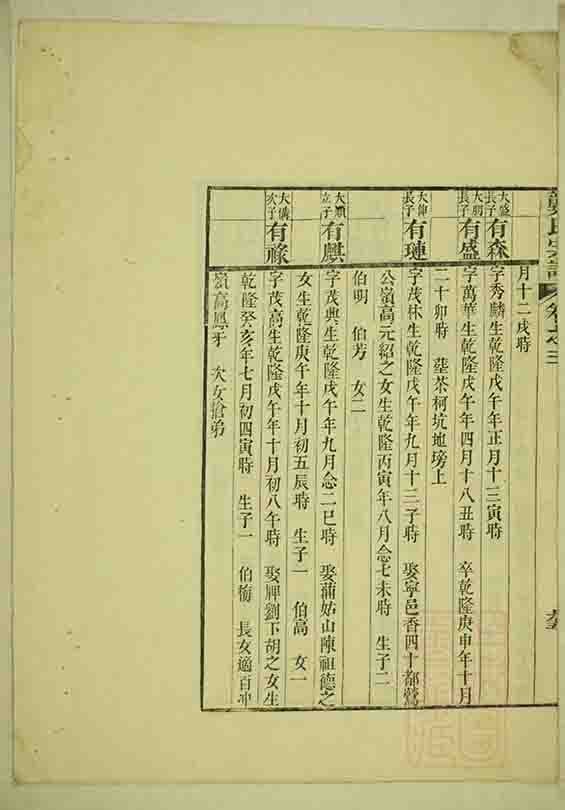 月十二戌時
大盛長子 有森 字秀麟生乾隆戊午年正月十三寅時
大朝長子 有盛 字萬華生乾隆戊午年四月十八丑時 卒乾隆庚申年十月
二十卯時 塟茶柯坑地塝上
大仰長子 有璉 字茂林生乾隆戊午年九月十三子時 娶寧邑香四十都鶯
公嶺高元紹之女生乾隆丙寅年八月念七未時 生子二
伯明 伯芳 女二
大順立子 有麒 字茂典生乾隆戊午年九月念二巳時 娶蒲姑山陳祖德之
女生乾隆庚午年十月初五辰時 生子一 伯高 女一
大備次子 有祿 字茂高生乾隆戊午年十月初八午時 娶岬劉下胡之女生
乾隆癸亥年七月初四寅時 生子一 伯衡 長女適百冲
嶺高鳳 次女搶弟